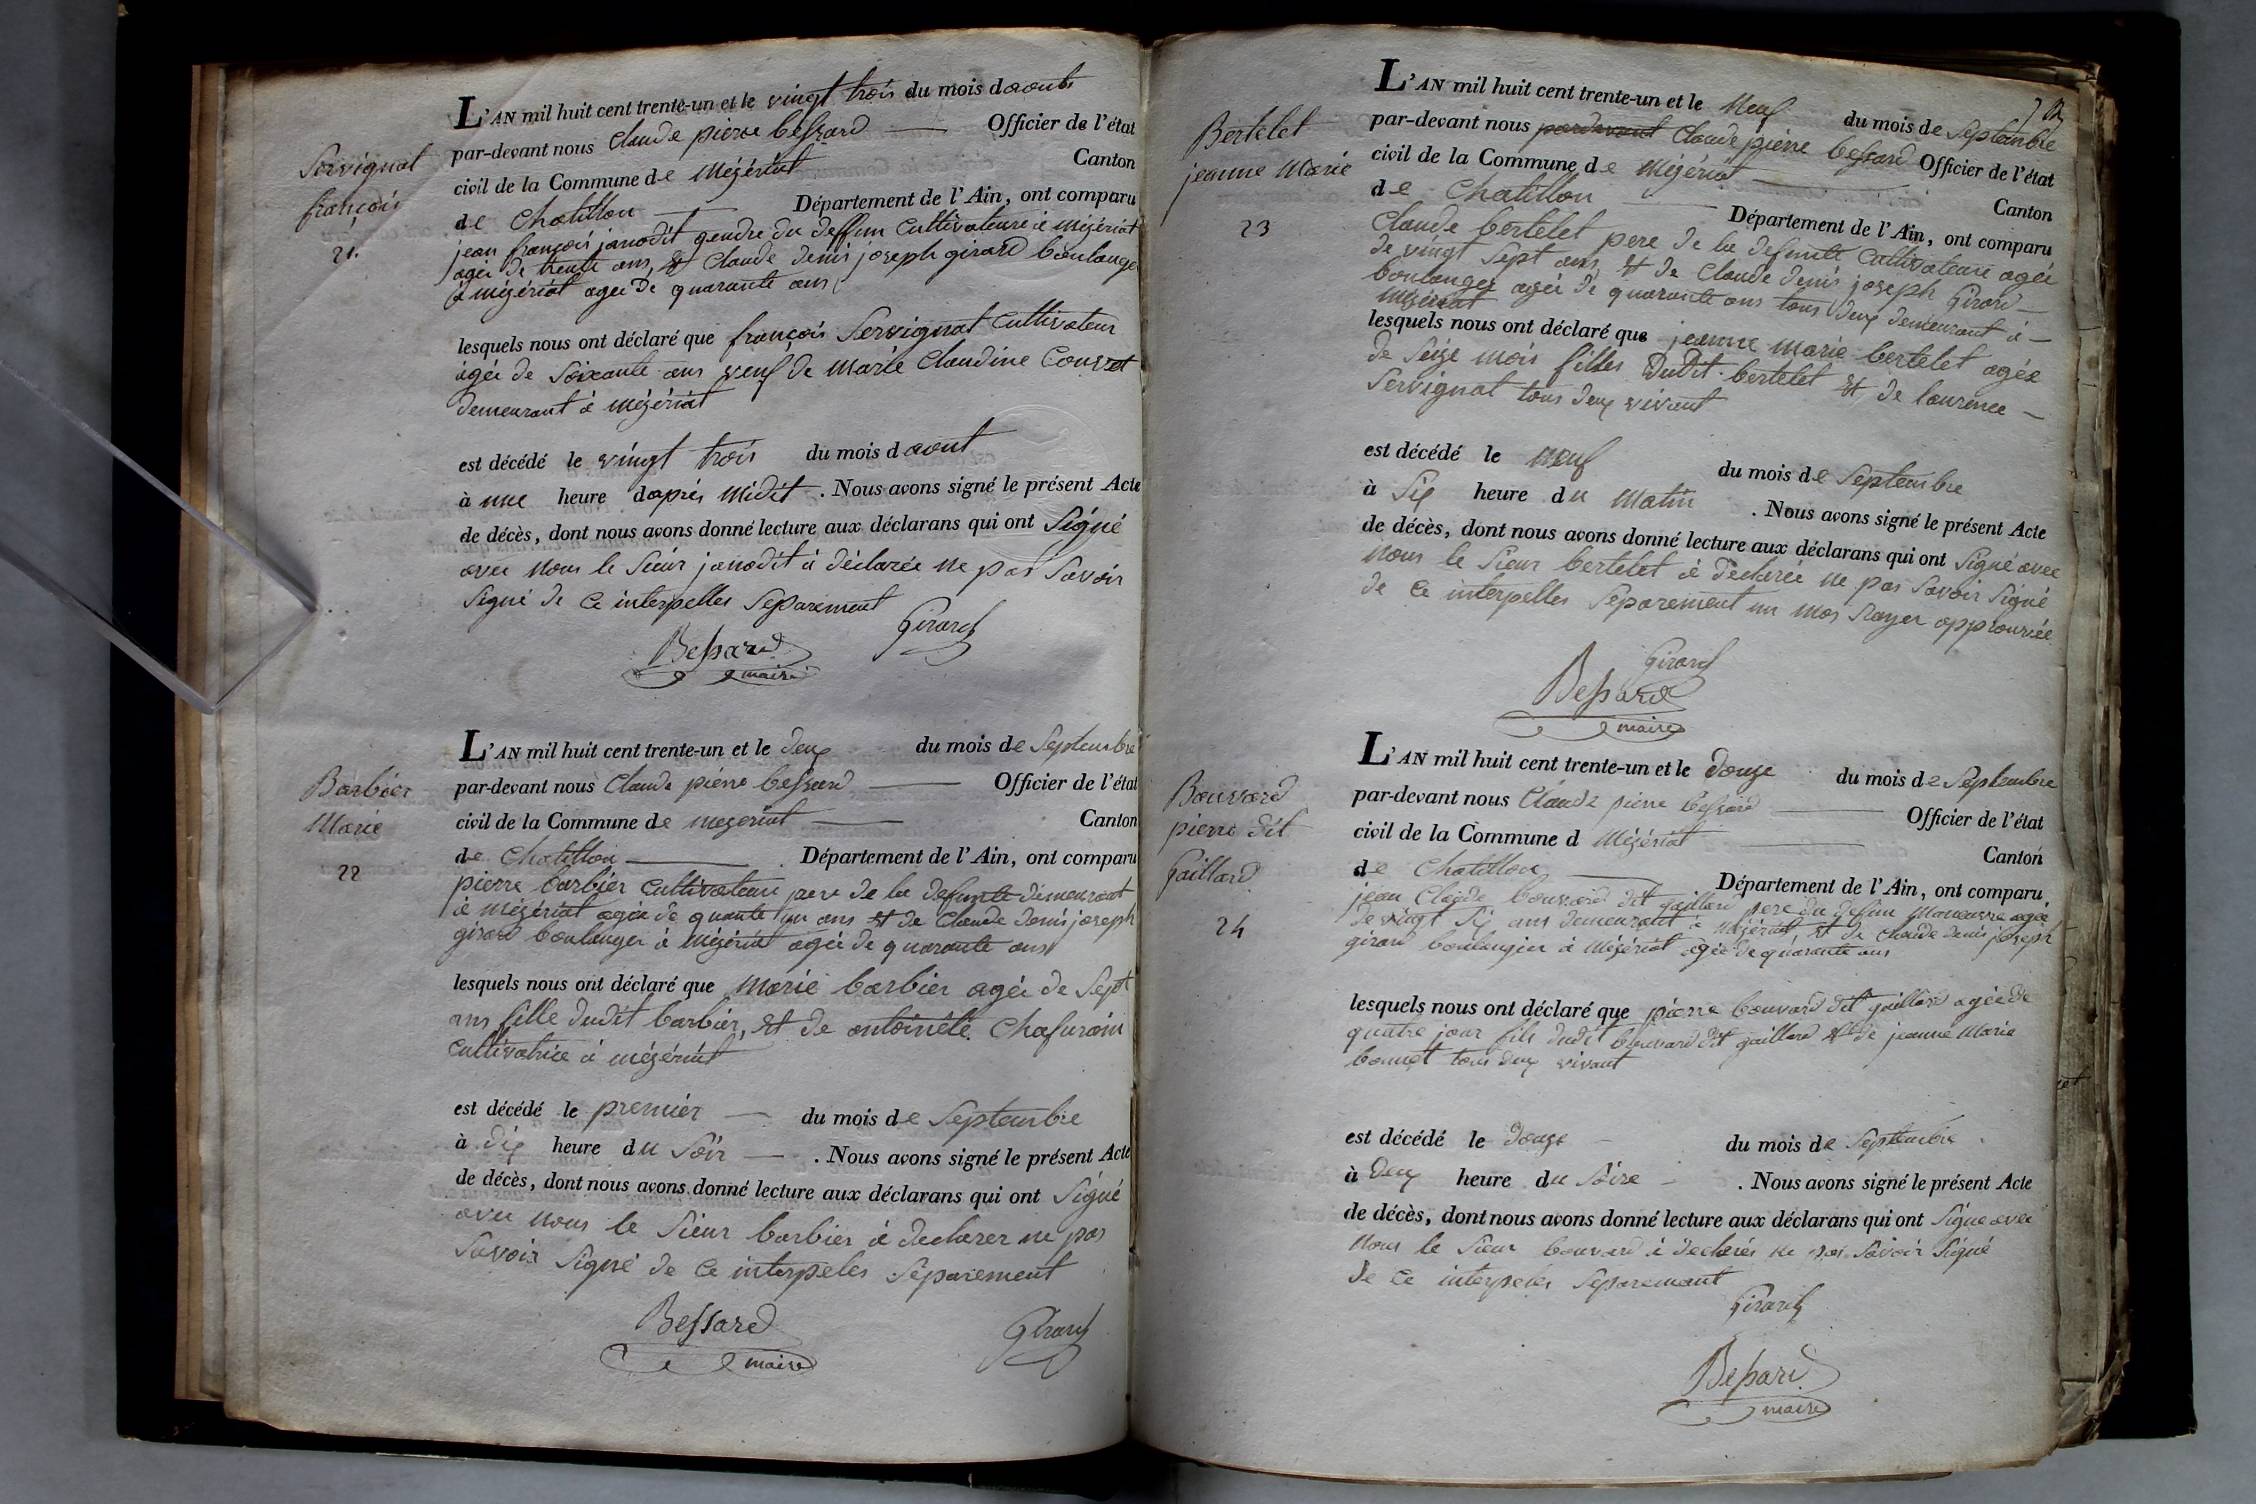 Servignat
françois
21.
L'AN mil huit cent trente-un et le vingt trois du mois d aoust
par-devant nous Claude pierre bessard — Officier de l'état
civil de la Commune de Mézériat Canton
de Chatillon — Département de l'Ain, ont comparu
jean françois janodit gendre du deffun Cultivateure à mézériat
agée de trente ans, et Claude denis joseph girard boulanger
à mézériat agée de quarante ans
lesquels nous ont déclaré que françois Servignat Cultivateur
âgée de Soixante ans veuf de marie Claudine Couvet
demeurant à mézériat
est décédé le vingt trois du mois d aout
à une heure d après Midit . Nous avons signé le présent Acte
de décès, dont nous avons donné lecture aux déclarans qui ont Signé
avec nous le Sieur janodit à déclarée ne pas Savoir
Signé de Ce interpelles Séparement
Girard
Bessard
maire
Barbier
Marie
22
L'AN mil huit cent trente-un et le deux du mois de Septembre
par-devant nous Claude pierre bessard — Officier de l'état
civil de la Commune de mezeriat — Canton
de Chatillon — . Département de l'Ain, ont comparu
pierre barbier Cultivateur pere de la defunte demeurant
à mézériat agée de quante un ans et de Claude denis joseph
girard boulanger à Mézériat agée de quarante ans
lesquels nous ont déclaré que Marie barbier agée de Sept
ans fille dudit barbier, et de antoinéte Chafurain
Cultivatrice à mézériat
est décédé le premier — du mois de Septembre
à dix heure du Soir — . Nous avons signé le présent Acte
de décès, dont nous avons donné lecture aux déclarans qui ont Signé
avec nous le Sieur barbier à declarer ne pas
Savoir Signé de Ce interpeles Séparement
Bessard
maire
Girard
72
Bertelet
jeanne Marie
23
L'AN mil huit cent trente-un et le Neuf du mois de Septembre
par-devant nous pardevant Claude pierre bessard Officier de l'état
civil de la Commune de Mézériat — Canton
de Chatillon — Département de l'Ain, ont comparu
Claude bertelet pere de la defunte Cultivateure agée
de vingt Sept ans, et de Claude denis joseph Girard —
boulanger agée de quarante ans tous deux demeurant à —
Mézériat
lesquels nous ont déclaré que jeanne marie bertelet agée
de Seize mois filles dudit bertelet et de laurence —
Servignat tous deux vivant
est décédé le neuf du mois de Septembre
à Six heure du Matin . Nous avons signé le présent Acte
de décès, dont nous avons donné lecture aux déclarans qui ont Signé avec
Nous le Sieur bertelet à declarée ne pas Savoir Signé
de Ce interpelles Séparement un mos rayer approuvée
Girard
Bessard
maire
Bouvard
pierre dit
Gaillard
24
L'AN mil huit cent trente-un et le douze du mois de Septembre
par-devant nous Claude pierre bessard — Officier de l'état
civil de la Commune d Mézériat — Canton
de Chatillon — Département de l'Ain, ont comparu
jean Claude bouvard dit gaillard pere du defun Maneuvre agée
de vingt Six ans demeurant à Mézériat et de Claude denis joseph
girard boulengier à Mézériat agée de quarante ans
lesquels nous ont déclaré que pierre bouvard dit gaillard agée de
quatre jour fils dudit bouvard dit gaillard et de jeanne Marie
bonnet tous deux vivant
est décédé le douze — du mois de Septembre
à deux heure du Soire — . Nous avons signé le présent Acte
de décès, dont nous avons donné lecture aux déclarans qui ont Signé avec
Nous le Sieur bouvard à declarés ne pas Savoir Signé
de Ce interpeles Séparemant
Girard
Bessard
maire